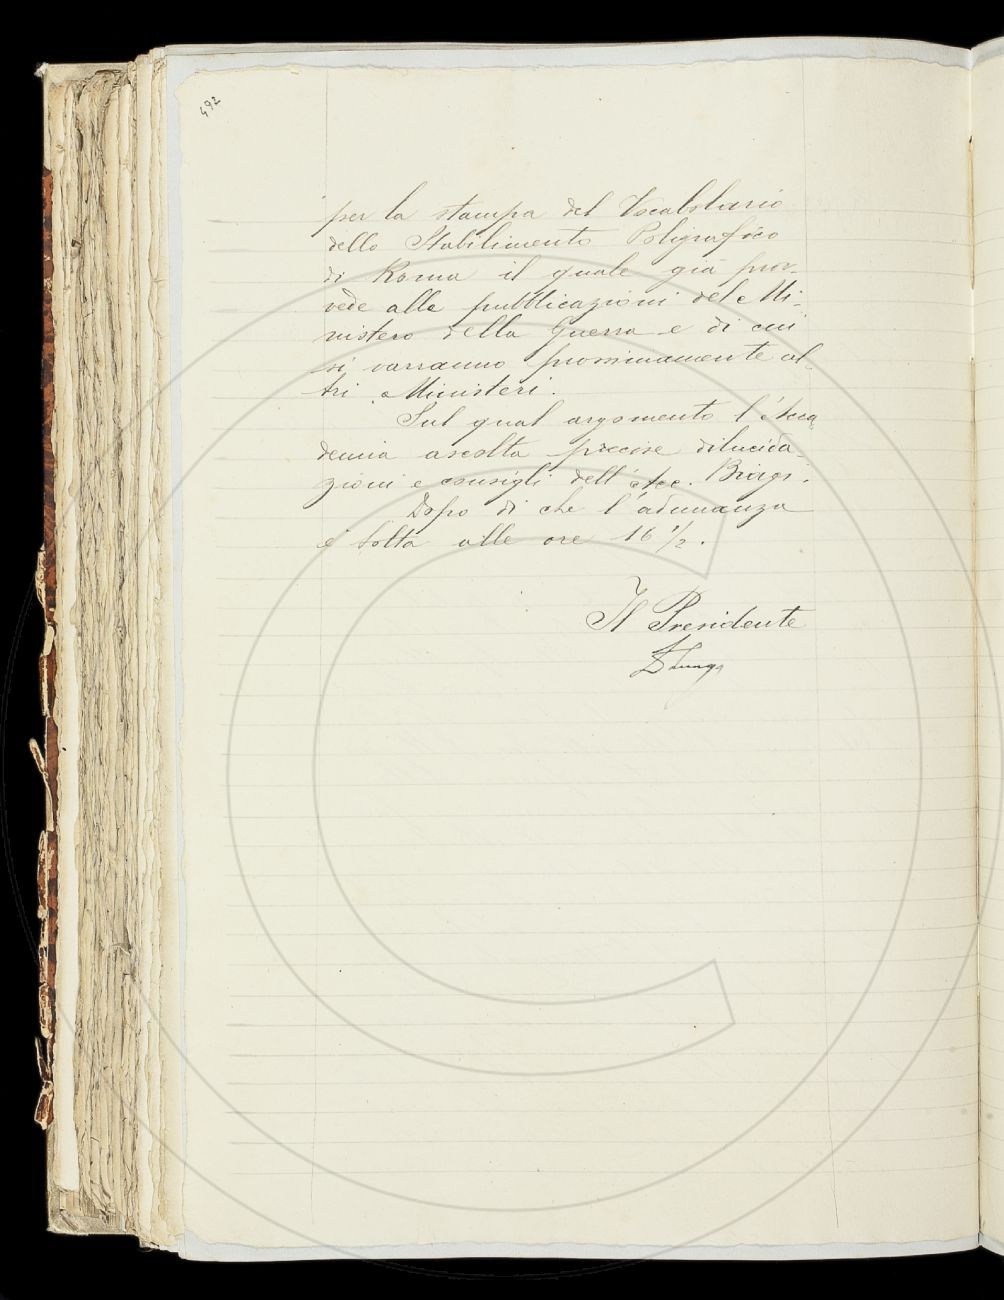 492
per la stampa del Vocabolario
dello Stabilimento Poligrafico
di Roma il quale già prov-
vede alle pubblicazioni del Mi-
nistero della Guerra e di cui
si varranno prossimamente al-
tri Ministeri.
Sul qual argomento l'Acca
demia ascolta precise dilucida-
zioni e consigli dell'Acc. Biagi.
Dopo di che l'adunanza
è tolta alle ore 16 1/2.
Il Presidente